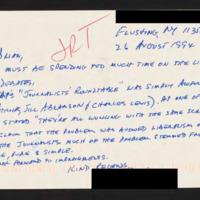 FLUSHING, NY 1135
26 AUGUST 1994
JRT
BRIAN,
MUST BE SPENDING TOO MUCH TIME ON THE LI
UPDATES.
"JOURNALISTS' ROUNDTABLE" WAS SIMPLY
JILL ABRAMSON (CHARLES LEWIS). AT ONE OF
STATED "THEY'RE ALL WORKING WITH THE SAME SCR
CLAIM THAT THE PROBLEM WAS AVOWED LIBERALISM
THE JOURNALISTS MUCH OF THE PROBLEM STEMMED FR
PURE & SIMPLE.
FORWARD TO
KIND REGARDS,